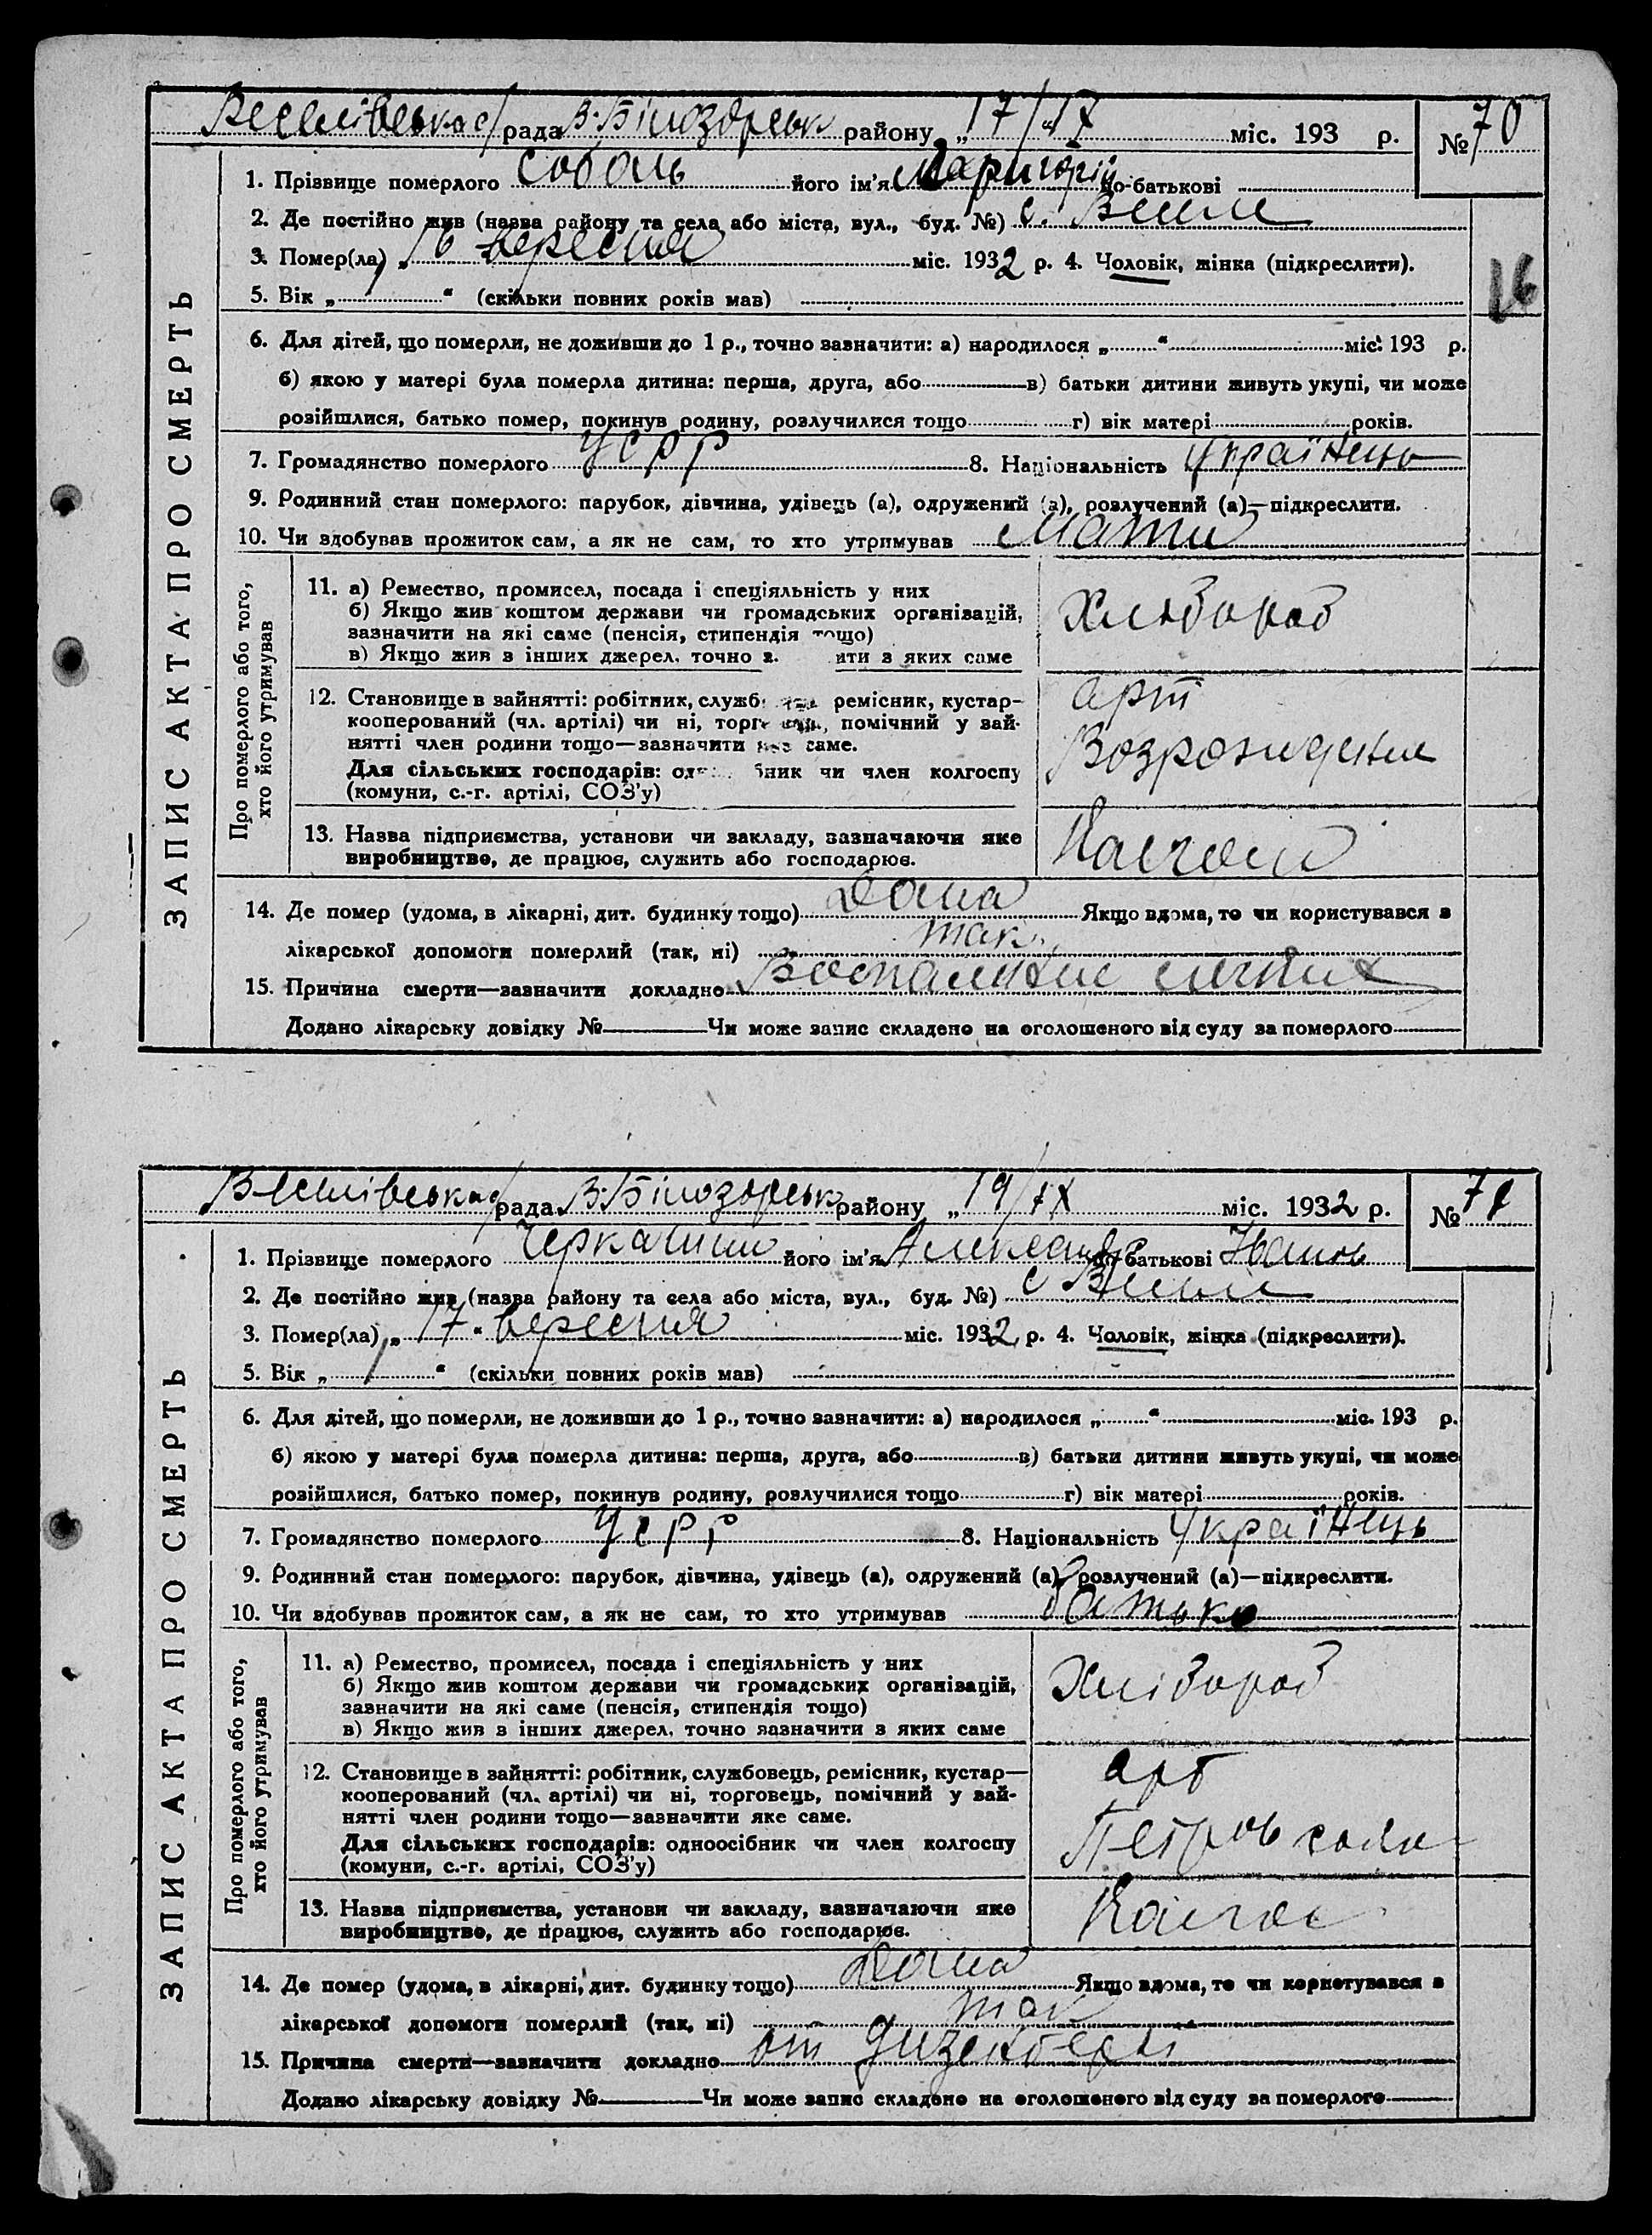 рада В-Білозорськ району „17/IX міс. 193 р. № 70
1. Прізвище померлого Соболь його ім'я по-батькові
2. Де постійно жив (назва району та села або міста, вул., буд. №) с.
3. Помер(ла) „16 вересня міс. 1932 р. 4. Чоловік, жінка (підкреслити).
5. Вік „1“ (скільки повних років мав)
16
6. Для дітей, що померли, не доживши до 1 р., точно зазначити: а) народилося „ “ міс. 193 р.
б) якою у матері була померла дитина: перша, друга, або в) батьки дитини живуть укупі, чи може
розійшлися, батько помер, покинув родину, розлучилися тощо г) вік матері років.
7. Громадянство померлого УСРР 8. Національність Українець
9. Родинний стан померлого: парубок, дівчина, удівець (а), одружений (а), розлучений (а)—підкреслити.
10. Чи здобував прожиток сам, а як не сам, то хто утримував Мати
ЗАПИС АКТА ПРО СМЕРТЬ
Про померлого або того, хто його утримував
11. а) Ремество, промисел, посада і спеціяльність у них
б) Якщо жив коштом держави чи громадських організацій,
зазначити на які саме (пенсія, стипендія тощо)
в) Якщо жив з інших джерел, точно з ити з яких саме
Хлібороб
12. Становище в зайнятті: робітник, служб ремісник, кустар-
кооперований (чл. артілі) чи ні, торг помічний у зай-
нятті член родини тощо—зазначити яке саме.
Для сільських господарів: од бник чи член колгоспу
(комуни, с.-г. артілі, СОЗ'у)
арт
Возрождение
13. Назва підприємства, установи чи закладу, зазначаючи яке
виробництво, де працює, служить або господарює.
14. Де помер (удома, в лікарні, дит. будинку тощо) Дома Якщо вдома, то чи користувався з
лікарської допомоги померлий (так, ні) так
15. Причина смерти—зазначити докладно
Додано лікарську довідку № Чи може запис складено на оголошеного від суду за померлого
рада В-Білозорськ району „19/IX міс. 1932 р. № 71
1. Прізвище померлого його ім'я по-батькові Іванов
2. Де постійно жив (назва району та села або міста, вул., буд. №) с
3. Помер(ла) „17“ вересня міс. 1932 р. 4. Чоловік, жінка (підкреслити).
5. Вік „1“ (скільки повних років мав)
6. Для дітей, що померли, не доживши до 1 р., точно зазначити: а) народилося „ “ міс. 193 р.
б) якою у матері була померла дитина: перша, друга, або в) батьки дитини живуть укупі, чи може
розійшлися, батько помер, покинув родину, розлучилися тощо г) вік матері років.
7. Громадянство померлого УСРР 8. Національність Українець
9. Родинний стан померлого: парубок, дівчина, удівець (а), одружений (а), розлучений (а)—підкреслити.
10. Чи здобував прожиток сам, а як не сам, то хто утримував батько
ЗАПИС АКТА ПРО СМЕРТЬ
Про померлого або того, хто його утримував
11. а) Ремество, промисел, посада і спеціяльність у них
б) Якщо жив коштом держави чи громадських організацій,
зазначити на які саме (пенсія, стипендія тощо)
в) Якщо жив з інших джерел, точно зазначити з яких саме
Хлібороб
12. Становище в зайнятті: робітник, службовець, ремісник, кустар—
кооперований (чл. артілі) чи ні, торговець, помічний у зай-
нятті член родини тощо—зазначити яке саме.
Для сільських господарів: одноосібник чи член колгоспу
(комуни, с.-г. артілі, СОЗ'у)
арт
13. Назва підприємства, установи чи закладу, зазначаючи яке
виробництво, де працює, служить або господарює.
14. Де помер (удома, в лікарні, дит. будинку тощо) Дома Якщо вдома, то чи користувався з
лікарської допомоги померлий (так, ні) так
15. Причина смерти—зазначити докладно от
Додано лікарську довідку № Чи може запис складено на оголошеного від суду за померлого